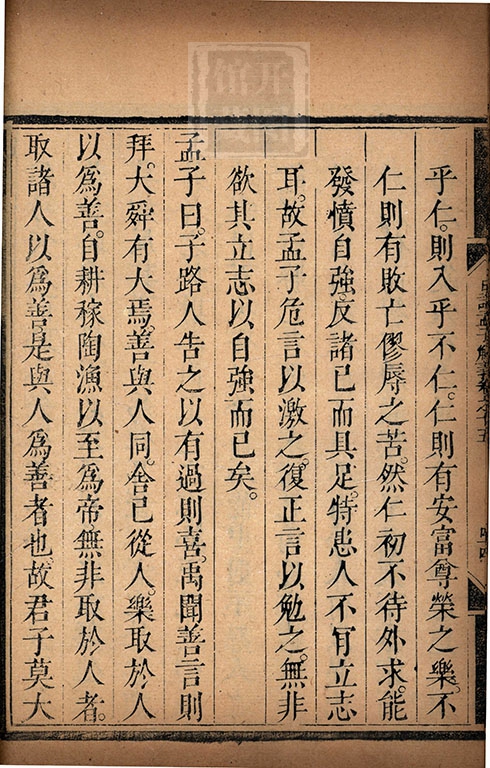 乎仁。則入乎不仁。仁則有安富尊榮之樂。不
仁則有敗亡僇辱之苦。然仁初不待外求。能
發憤自強。反諸己而具足。特患人不肎立志
耳。故孟子危言以激之。復正言以勉之。無非
欲其立志以自強而已矣。
孟子曰。子路人告之以有過則喜。禹聞善言則
拜。大舜有大焉。善與人同。舍己從人。樂取於人
以爲善。自耕稼陶漁以至爲帝無非取於人者。
取諸人以爲善。是與人爲善者也。故君子莫大